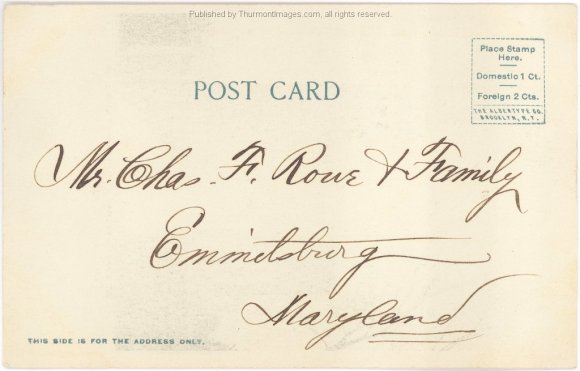 Published by ThurmontImages.com, all rights reserved.
Place Stamp
Here.
Domestic 1 Ct.
Foreign 2 Cts.
THE ALBERTYPE CO.
BROOKLYN, N.Y.
POST CARD
Mr. Chas. F. Rowe & Family
Emmitsburg
Maryland
THIS SIDE IS FOR THE ADDRESS ONLY.